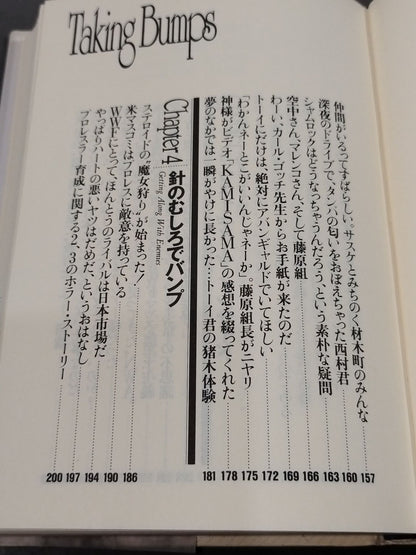 Taking Bumps
仲間がいるってすばらしい。サスケとみちのく材木町のみんな……157
深夜のドライブで、タンパの匂いをおぼえちゃった西村君……160
シャムロックはどうなっちゃうんだろう、という素朴な疑問……163
空中さん、マレンコさん、そして藤原組……166
わーい、カール・ゴッチ先生からお手紙が来たのだ……169
トーイにだけは、絶対にアバンギャルドでいてほしい……172
「わかんネーとこがいいんじゃネーか」。藤原組長がニヤリ……175
神様がビデオ「KAMISAMA」の感想を綴ってくれた……178
夢のなかでは一瞬がやけに長かった…トーイ君の猪木体験……181
Chapter 4 針のむしろでバンプ
Getting Along With Enemies
ステロイドの“魔女狩り”が始まった!……186
米マスコミはプロレスに敵意を持っている……190
WWFにとって、ほんとうのライバルは日本市場だ……194
やっぱりハートの悪いヤツはだめだ、というおはなし……197
プロレスラー育成に関する2、3のホラー・ストーリー……200